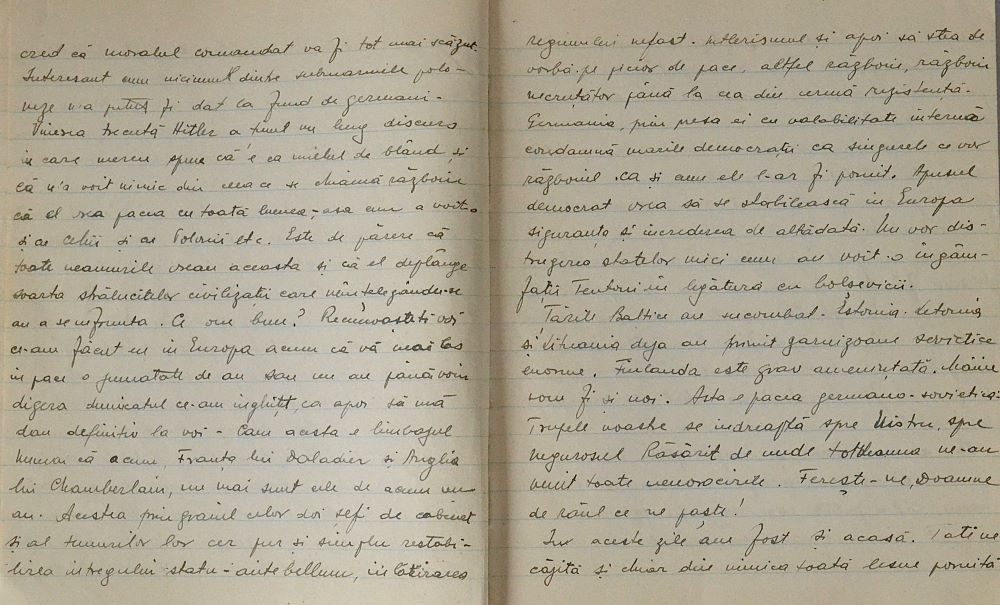 cred că moralul comandat va fi tot mai scăzut.
Interesant cum niciunul dintre submarinele polo-
neze n'a putut fi dat la fund de germani.
Vinerea trecută Hitler a ținut un lung discurs
în care mereu spune că e ca mielul de blând și
că n'a voit nimic din ceea ce se chiamă războiu
că el vrea pacea cu toată lumea, asa cum a voit-o
și cu Cehii și cu Polonii etc. Este de părere că
toate neamurile vreau aceasta și că el deplânge
soarta strălucitelor civilizații care neînțelegându-se
au a se înfrunta. Ce om bun! Recunoașteți voi
ce-am făcut eu în Europa acum că vă mai las
în pace o jumătate de an sau un an până voiu
digera dumicatul ce-am înghițit, ca apoi să mă
dau definitiv la voi. Cam acesta e limbagiul
Numai că acum, Franța lui Daladier și Anglia
lui Chamberlain, nu mai sunt cele de acum un
an. Acestea prin graiul celor doi șefi de cabinet
și al tuturilor lor cer pur și simplu restabi-
lirea întregului statu-ante bellum, înlăturarea
regimului nefast. Hitlerismul și apoi să stea de
vorbă pe picior de pace, altfel războiu, războiu
necruțător până la cea din urmă rezistență.
Germania, prin presa ei cu valabilitate internă
condamnă marile democrații ca singurele ce vor
războiul. Ca și cum ele l-ar fi pornit. Apusul
democrat vrea să se stabilească în Europa
siguranța și încrederea de altădată. Nu vor dis-
trugerea statelor mici cum au voit-o îngâm-
fații Teutoni în legătură cu bolșevicii.
Țările Baltice au sucombat. Estonia. Letonia
și Lituania deja au primit garnizoane sovietice
enorme. Finlanda este grav amenințată. Mâine
vom fi și noi. Asta e pacea germano-sovietică.
Trupele noastre se îndreaptă spre Nistru, spre
negurosul Răsărit de unde totdeauna ne-au
venit toate nenorocirile. Ferește-ne, Doamne
de răul ce ne paște!
În aceste zile am fost și acasă. Tati ne
căjită și chiar din nimica toată lesne pornită